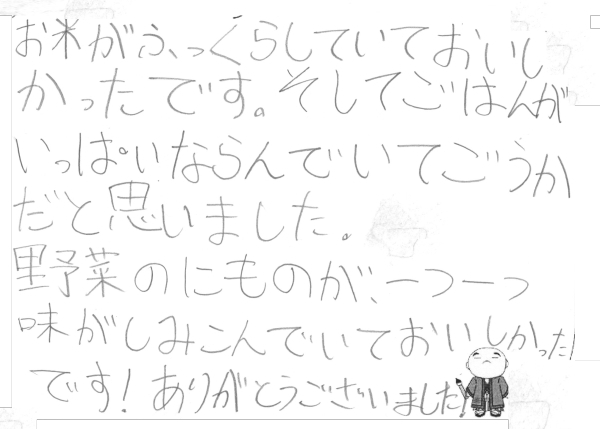 お米がふっくらしていておいし
かったです。そしてごはんが
いっぱいならんでいてごうか
だと思いました。
野菜のにものが、一つ一つ
味がしみこんでいておいしかった
です!ありがとうございました